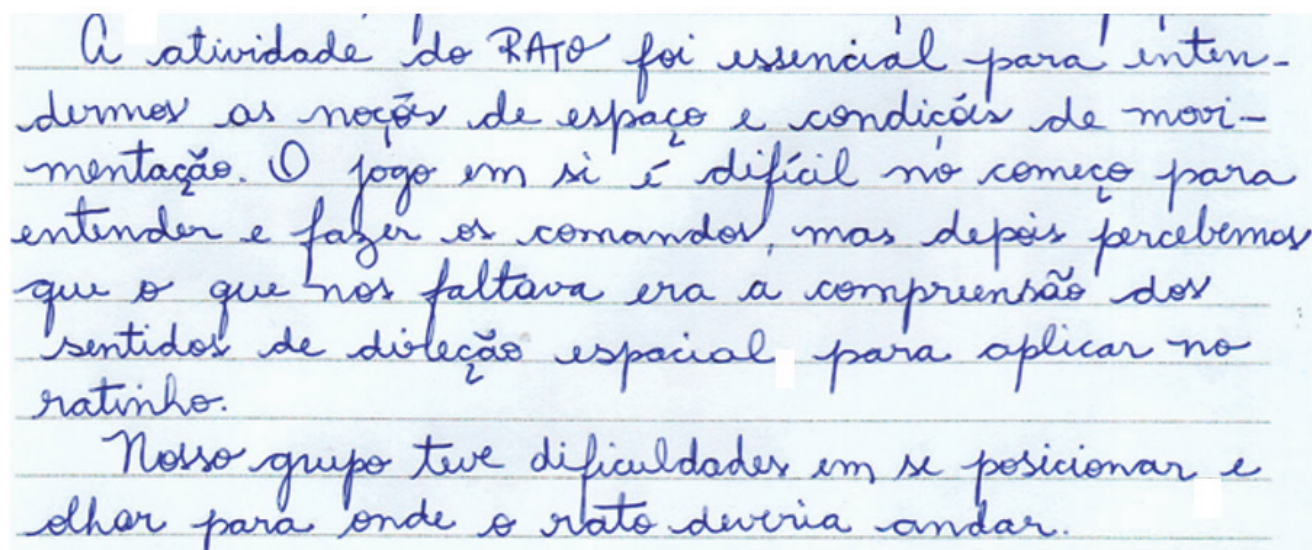 A atividade do RATO foi essencial para enten-
dermos as noções de espaço e condições de movi-
mentação. O jogo em si é difícil no começo para
entender e fazer os comandos, mas depois percebemos
que o que nos faltava era a compreensão dos
sentidos de direção espacial para aplicar no
ratinho.
Nosso grupo teve dificuldades em se posicionar e
olhar para onde o rato deveria andar.